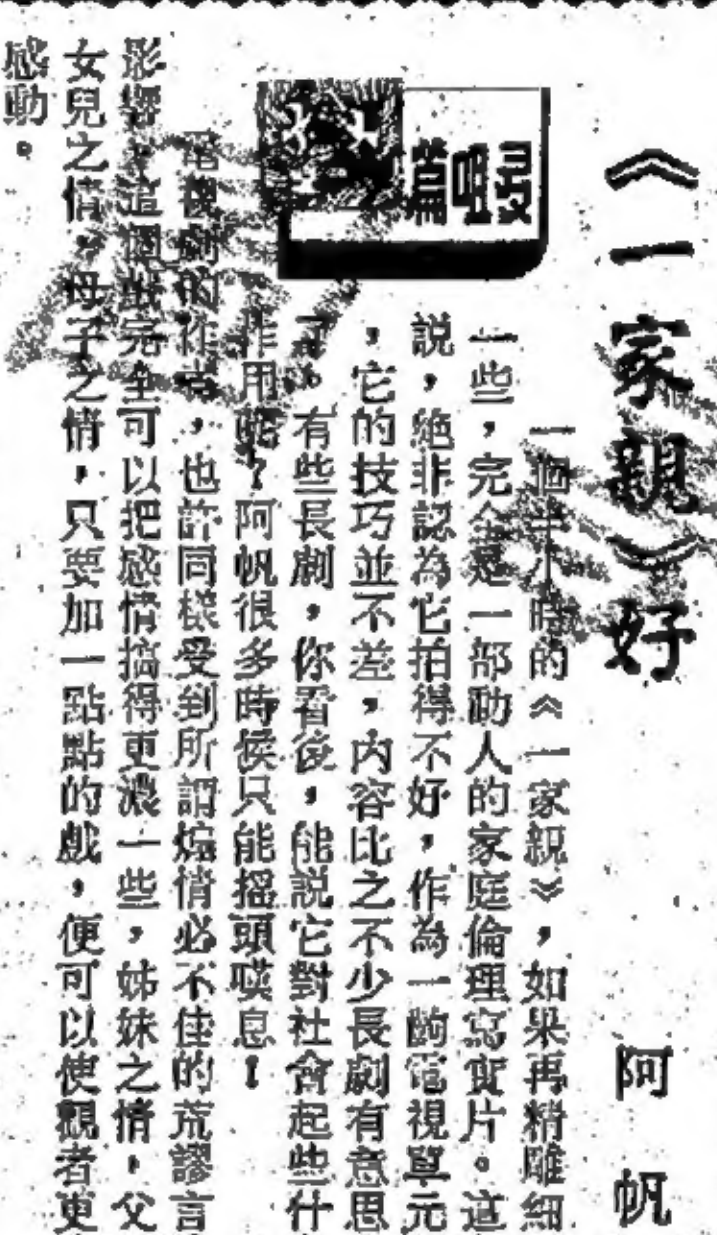 《一家親》好
阿帆
篇咀
一個半小時的《一家親》，如果再精雕細
一些，完全是一部動人的家庭倫理寫實片。這
說，絕非認為它拍得不好，作為一齣電視單元
，它的技巧並不差，內容比之不少長劇有意思
了。有些長劇，你看後，能說它對社會起些什
作用呢？阿帆很多時候只能搖頭嘆息！
電視劇的作者，也許同樣受到所謂煽情必不佳的荒謬言
影響，這個戲完全可以把感情搞得更濃一些，姊妹之情，父
女兒之情，母子之情，只要加一點點的戲，便可以使觀者更
感動。